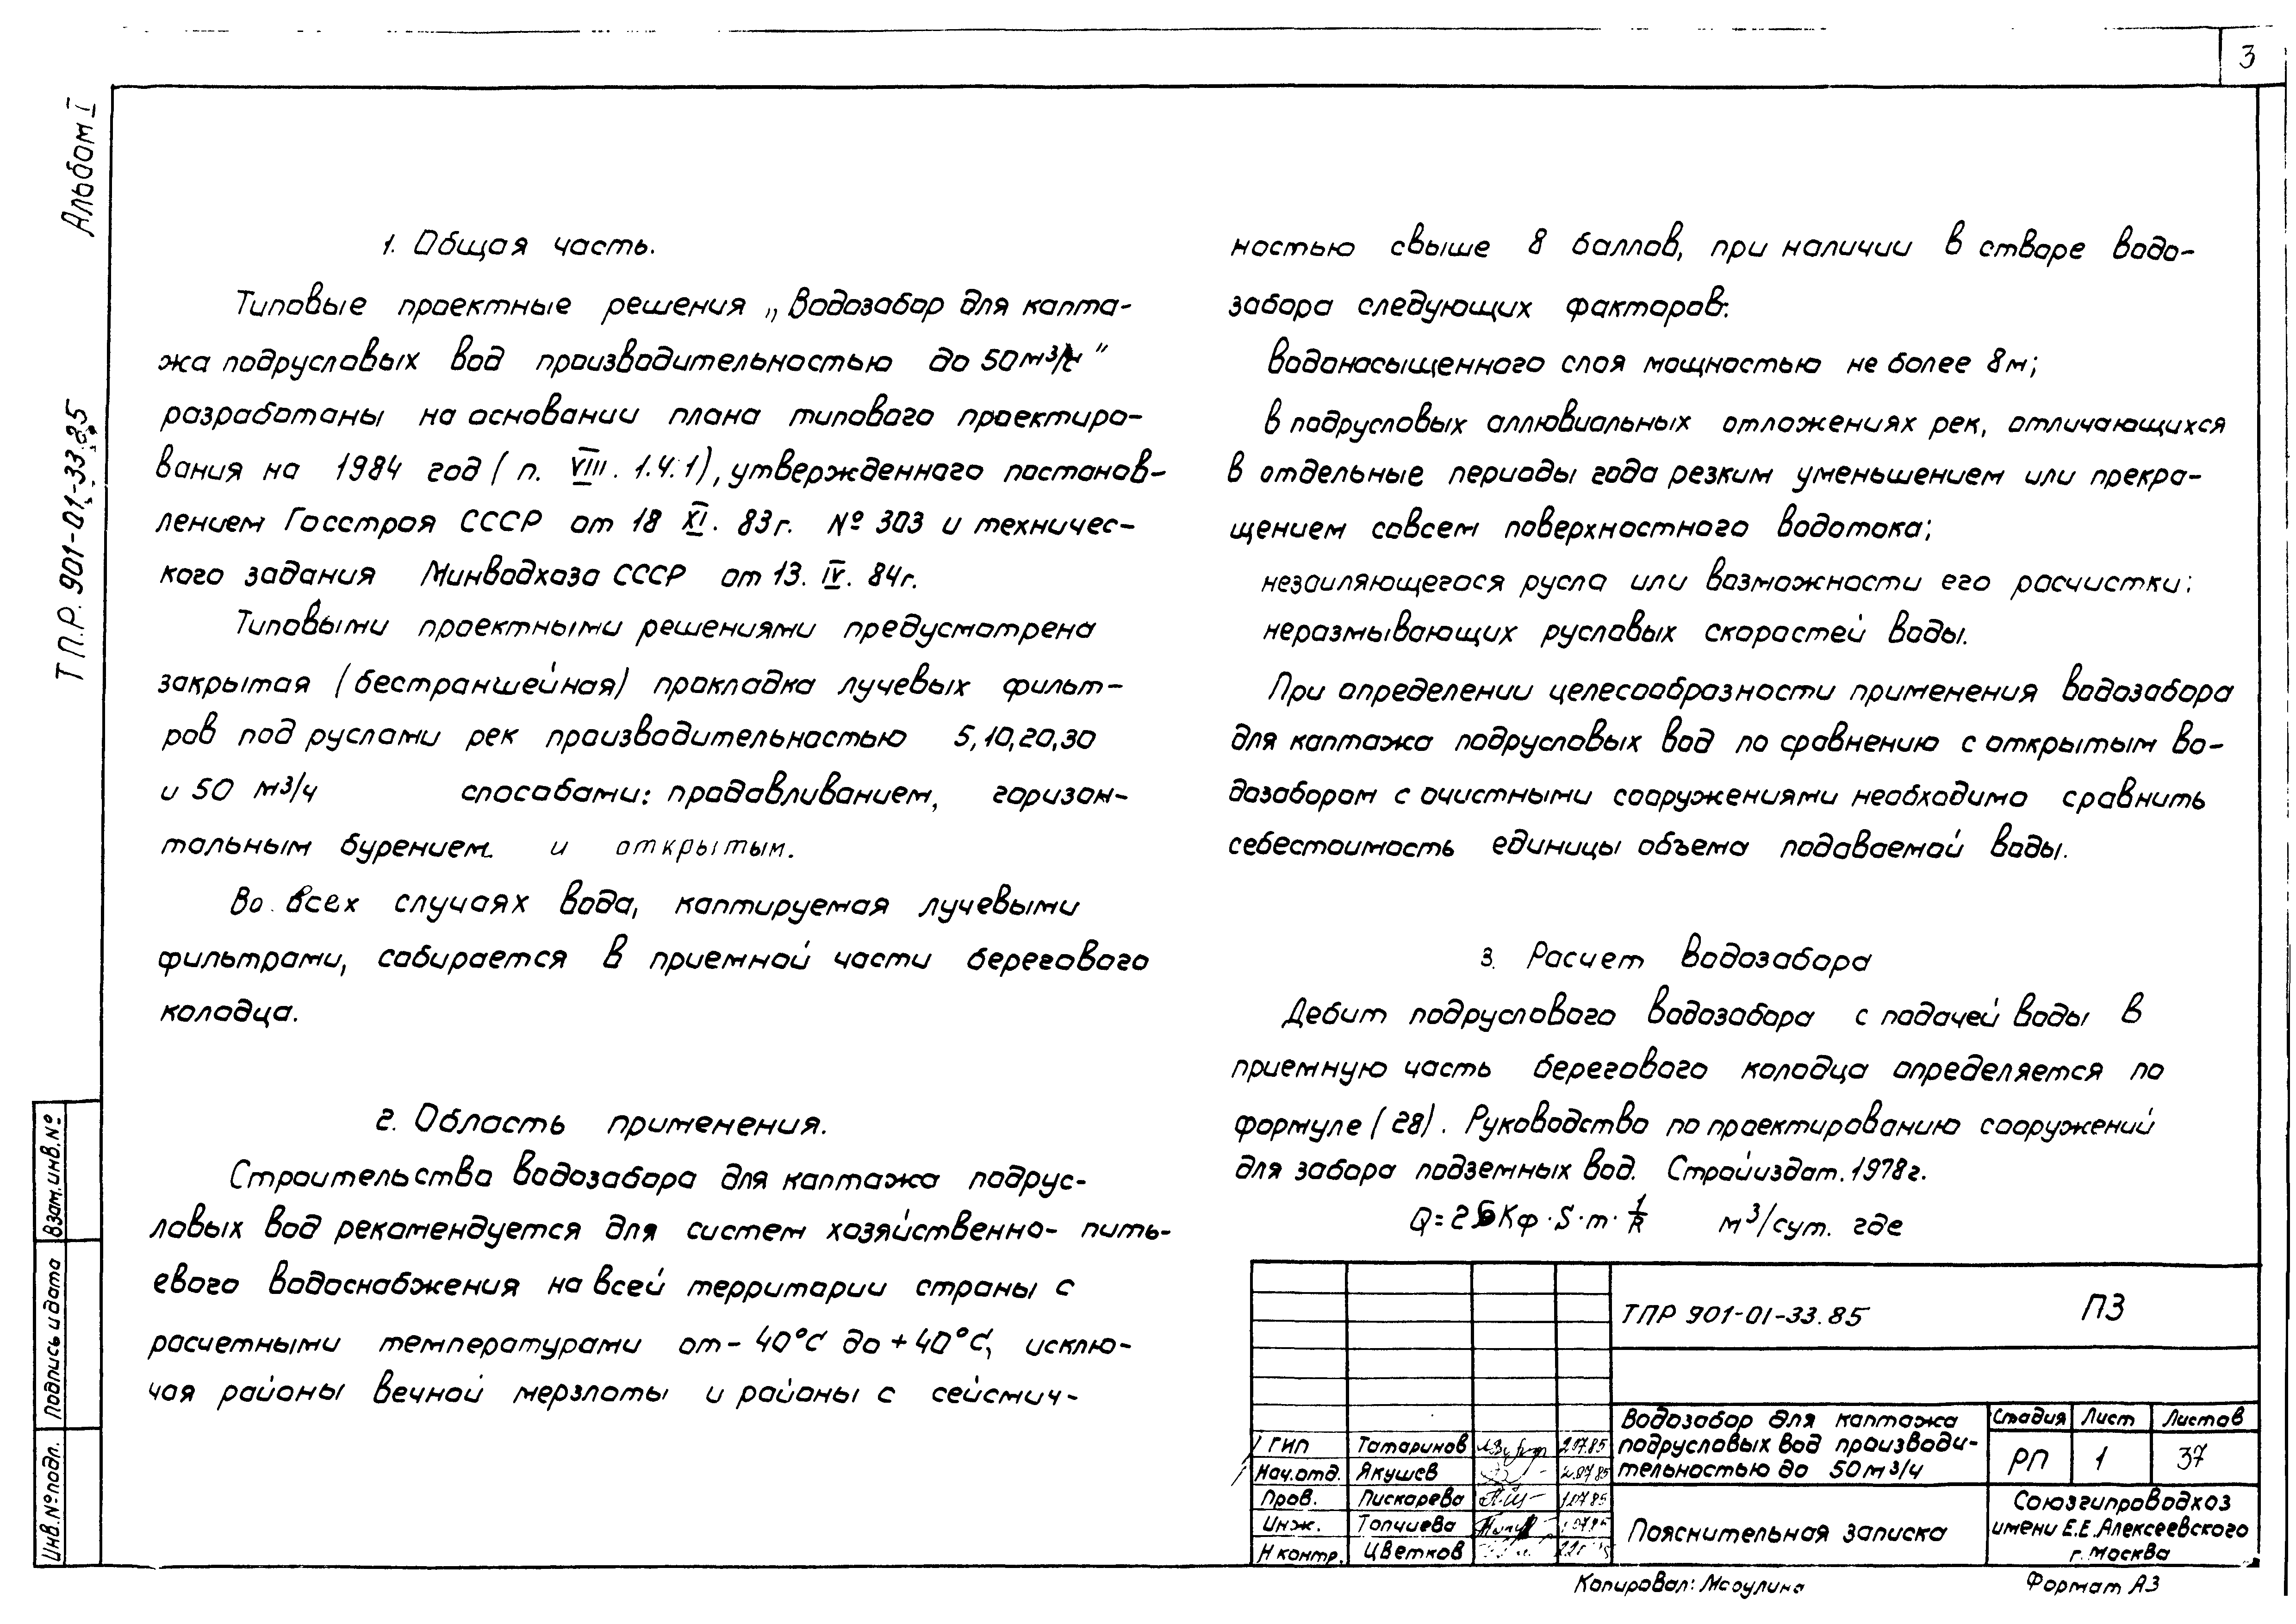 3
Альбом I
Т П.Р. 901-01-33.85
1. Общая часть.
Типовые проектные решения „Водозабор для капта-
жа подрусловых вод производительностью до 50 м³/ч"
разработаны на основании плана типового проектиро-
вания на 1984 год ( п. VIII. 1.4.1), утвержденного постанов-
лением Госстроя СССР от 18 XI. 83г. № 303 и техничес-
кого задания Минводхоза СССР от 13. IV. 84г.
Типовыми проектными решениями предусмотрена
закрытая (бестраншейная) прокладка лучевых фильт-
ров под руслами рек производительностью 5,10,20,30
и 50 м³/ч способами: продавливанием, горизон-
тальным бурением. и открытым.
Во всех случаях вода, каптируемая лучевыми
фильтрами, собирается в приемной части берегового
колодца.
2. Область применения.
Строительство водозабора для каптажа подрус-
ловых вод рекомендуется для систем хозяйственно- пить-
евого водоснабжения на всей территории страны с
расчетными температурами от - 40°С до + 40°С, исклю-
чая районы вечной мерзлоты и районы с сейсмич-
ностью свыше 8 баллов, при наличии в створе водо-
забора следующих факторов:
водонасыщенного слоя мощностью не более 8м;
в подрусловых аллювиальных отложениях рек, отличающихся
в отдельные периоды года резким уменьшением или прекра-
щением совсем поверхностного водотока;
незаиляющегося русла или возможности его расчистки;
неразмывающих русловых скоростей воды.
При определении целесообразности применения водозабора
для каптажа подрусловых вод по сравнению с открытым во-
дозабором с очистными сооружениями необходимо сравнить
себестоимость единицы объема подаваемой воды.
3. Расчет водозабора
Дебит подруслового водозабора с подачей воды в
приемную часть берегового колодца определяется по
формуле (28). Руководство по проектированию сооружений
для забора подземных вод. Стройиздат. 1978г.
Q = 2 Кф · S · m · 1/R м³/сут. где
ТПР 901-01-33.85 ПЗ
Водозабор для каптажа
подрусловых вод производи-
тельностью до 50 м³/ч
Стадия Лист Листов
РП 1 37
Пояснительная записка
Союзгипроводхоз
имени Е.Е.Алексеевского
г. Москва
ГИП Татаринов 2.07.85
Нач.отд. Якушев 2.07.85
Пров. Пискарева 1.07.85
Инж. Топчиева 1.07.85
Н контр. Цветков
Взам.инв.№
Подпись и дата
Инв.№подл.
Копировал: Формат А3